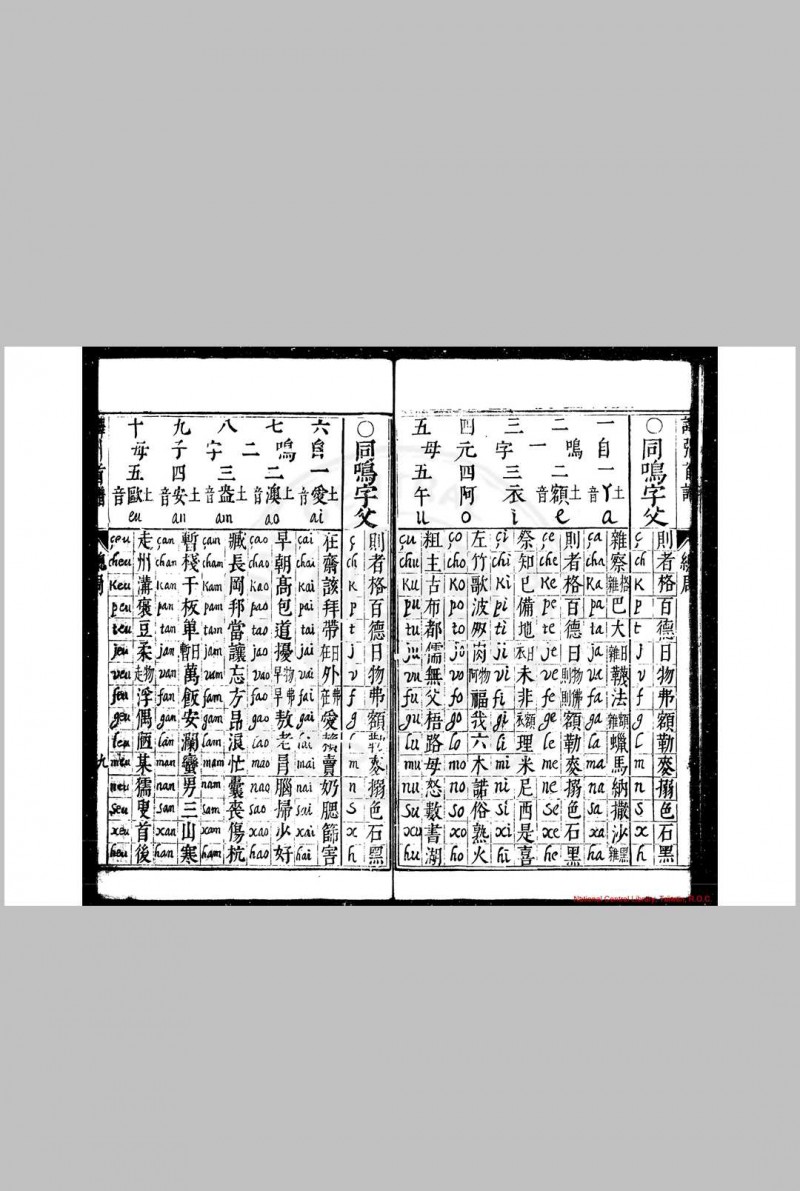 ○同鳴字父
則者格百德日物弗額勒麥搦色石黑
ç ch k p t j v f g l m n s x h
一自一丫土 a
雜察 巴大 韈法 蠟馬納撒沙
ça cha ka pa ta ja va fa ga la ma na sa xa ha
二鳴二額土音 e
則者格百德日物弗額勒麥搦色石黑
çe che ke pe te je ve fe ge le me ne se xe he
三字三衣 i
祭知已備地 未非 理米尼西是喜
çi chi ki pi ti ji vi fi gi li mi ni si xi hi
四元四阿 o
左竹歌波 肉 福我六木諾俗熟火
ço cho ko po to jo vo fo go lo mo no so xo ho
五母五午 u
租主古布都儒無父梧路母怒數書湖
çu chu ku pu tu ju vu fu gu lu mu nu su xu hu
○同鳴字父
則者格百德日物弗額勒麥搦色石黑
ç ch k p t j v f g l m n s x h
六自一愛土 ai
在齋該拜帶 外 愛賴賣奶腮篩害
çai chai kai pai tai jai vai fai gai lai mai nai sai xai hai
七鳴二澳土 ao
早朝高包道擾 敖老冐腦掃少好
çao chao kao pao tao jao vao fao gao lao mao nao sao xao hao
八字三盎土 am
臧長岡邦當讓忘方昂浪忙囊喪傷杭
çam cham kam pam tam jam vam fam gam lam mam nam sam xam ham
九子四安土 an
暫棧干板单 萬飯安瀾蠻男三山寒
çan chan kan pan tan jan van fan gan lan man nan san xan han
十母五歐土音 eu
走州溝裒豆柔 浮偶陋某獳叟首後
çeu cheu keu peu teu jeu veu feu geu leu meu neu seu xeu heu
九
National Central Library, Taiwan, R.O.C.